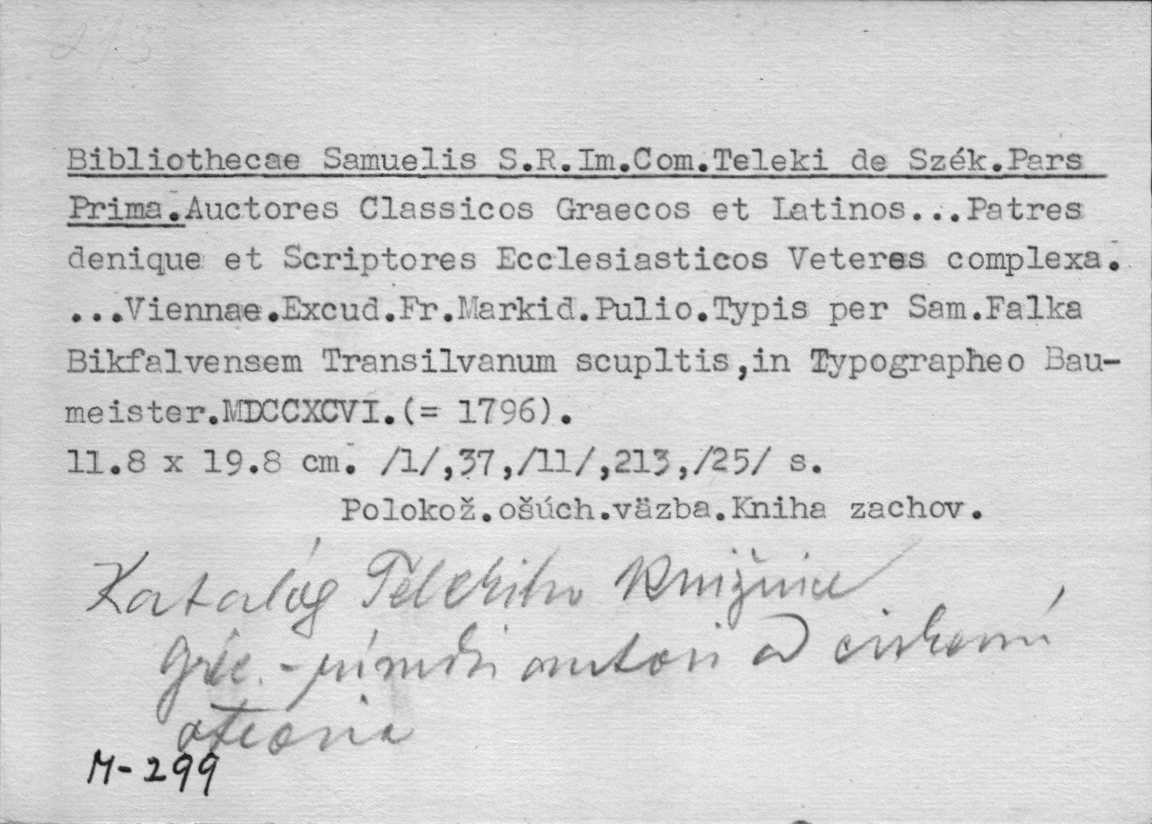 Bibliothecae Samuelis S.R.Im.Com.Teleki de Szék.Pars
Prima.Auctores Classicos Graecos et Latinos...Patres
denique et Scriptores Ecclesiasticos Veteres complexa.
...Viennae.Excud.Fr.Markid.Pulio.Typis per Sam.Falka
Bikfalvensem Transilvanum scupltis,in Typographeo Bau-
meister.MDCCXCVI.(= 1796).
11.8 x 19.8 cm. /1/,37,/11/,213,/25/ s.
Polokož.ošúch.väzba.Kniha zachov.
Katalóg Telekiho knižnice
Gréc.-rímski autori a cirkevní
otcovia
M-299